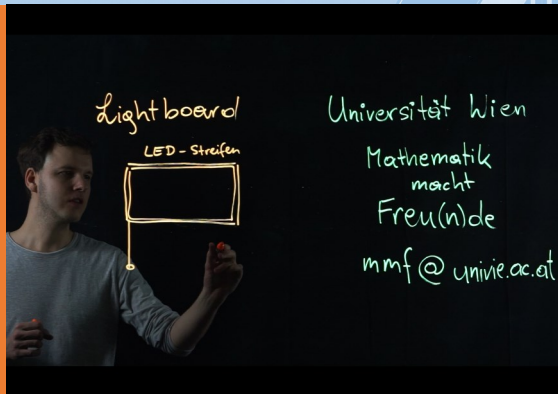 Lightboard
LED-Streifen
Universität Wien
Mathematik
macht
Freu(n)de
mmf@univie.ac.at